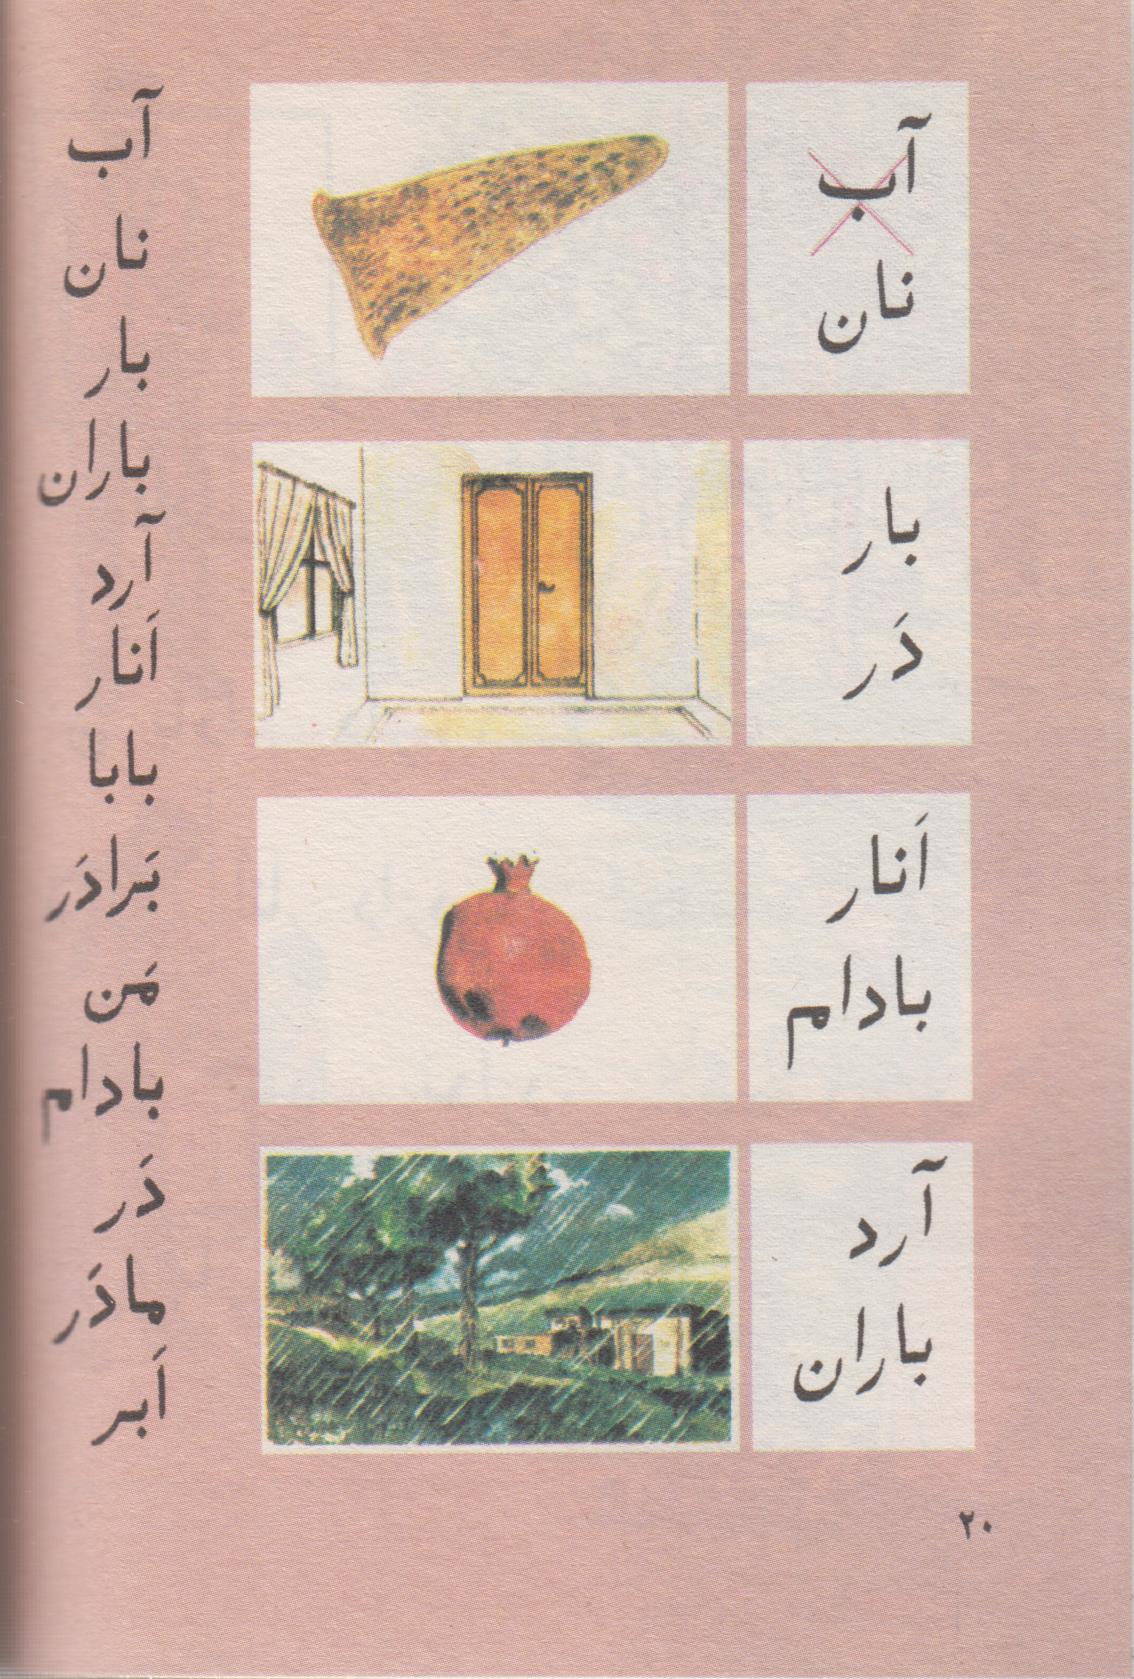 آب
نان
بار
دَر
اَنار
بادام
آرد
باران
آب
نان
بار
باران
آرد
اَنار
بابا
بَرادَر
مَن
بادام
دَر
مادَر
اَبر
۲۰